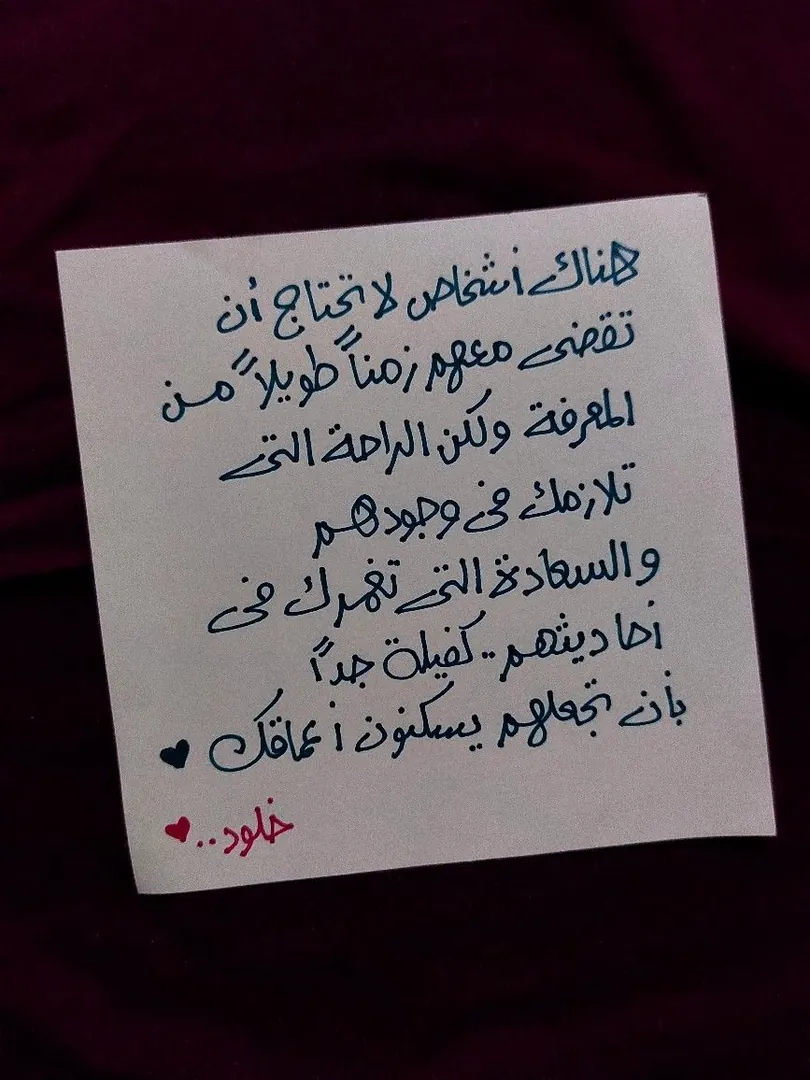 هناك أشخاص لا تحتاج أن
تقضى معهم زمناً طويلاً من
المعرفة ولكن الراحة التى
تلازمك فى وجودهم
والسعادة التى تغمرك فى
أحاديثهم .. كفيلة جداً
بأن تجعلهم يسكنون أعماقك ♥
خلود .. ♥